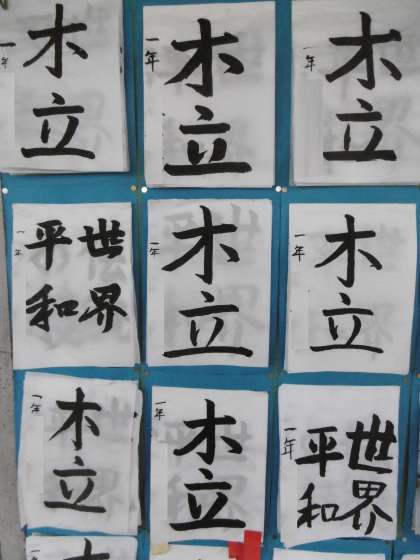 木立
一年
木立
一年
木立
一年
世界
平和
一年
木立
一年
木立
一年
木立
一年
木立
一年
世界
平和
一年
木